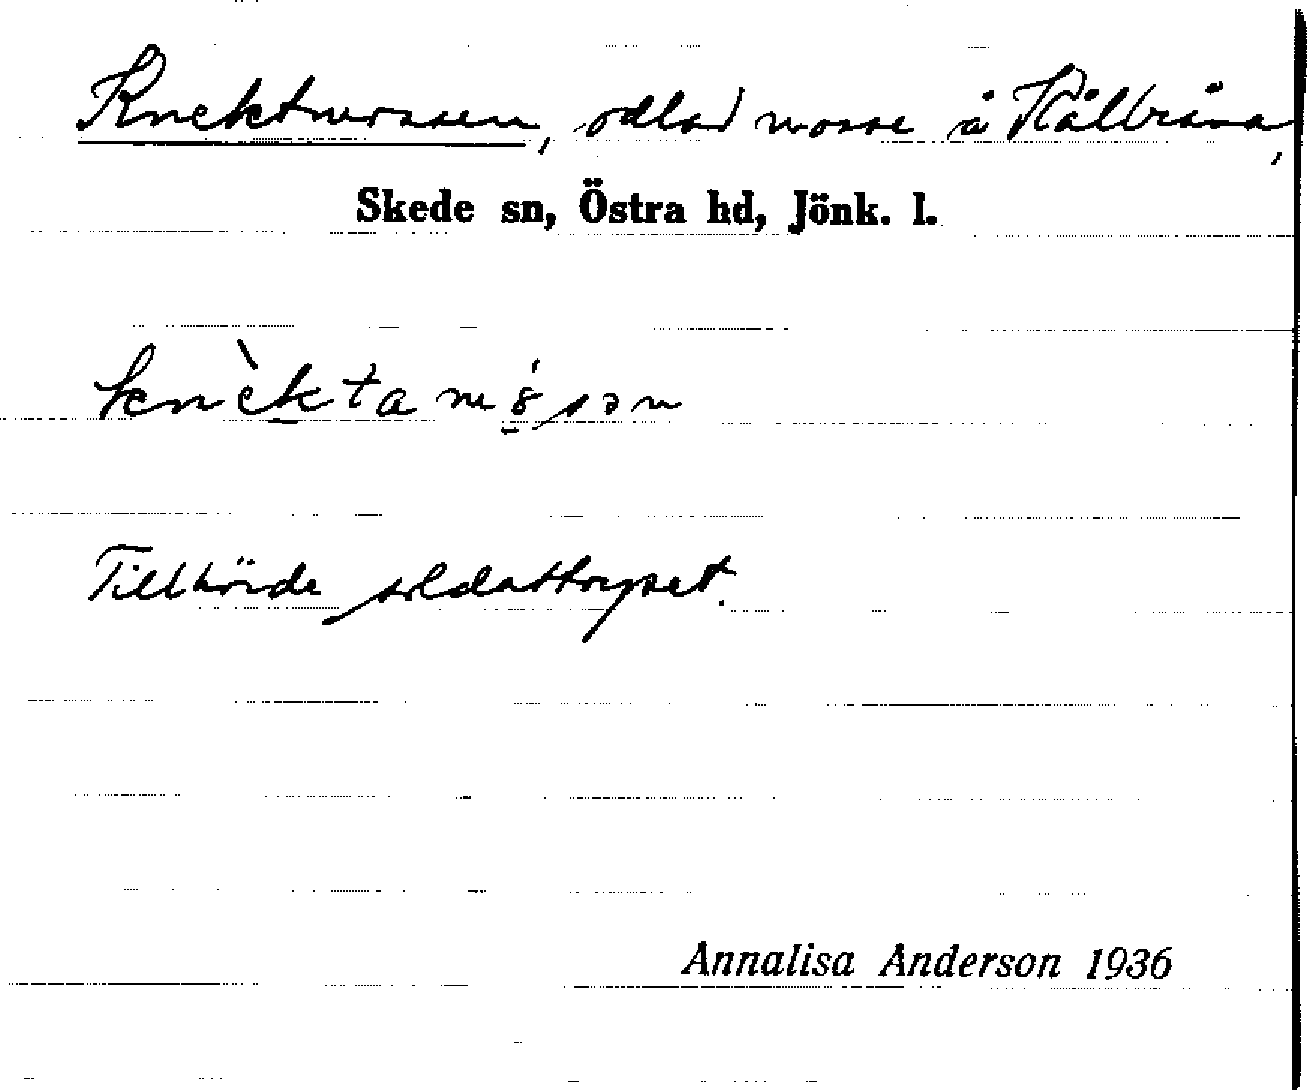 Knektmossen, odlad mosse å Kålbråna,
Skede sn, Östra hd, Jönk. l.
knèktamósən
Tillhörde soldattorpet.
Annalisa Anderson 1936